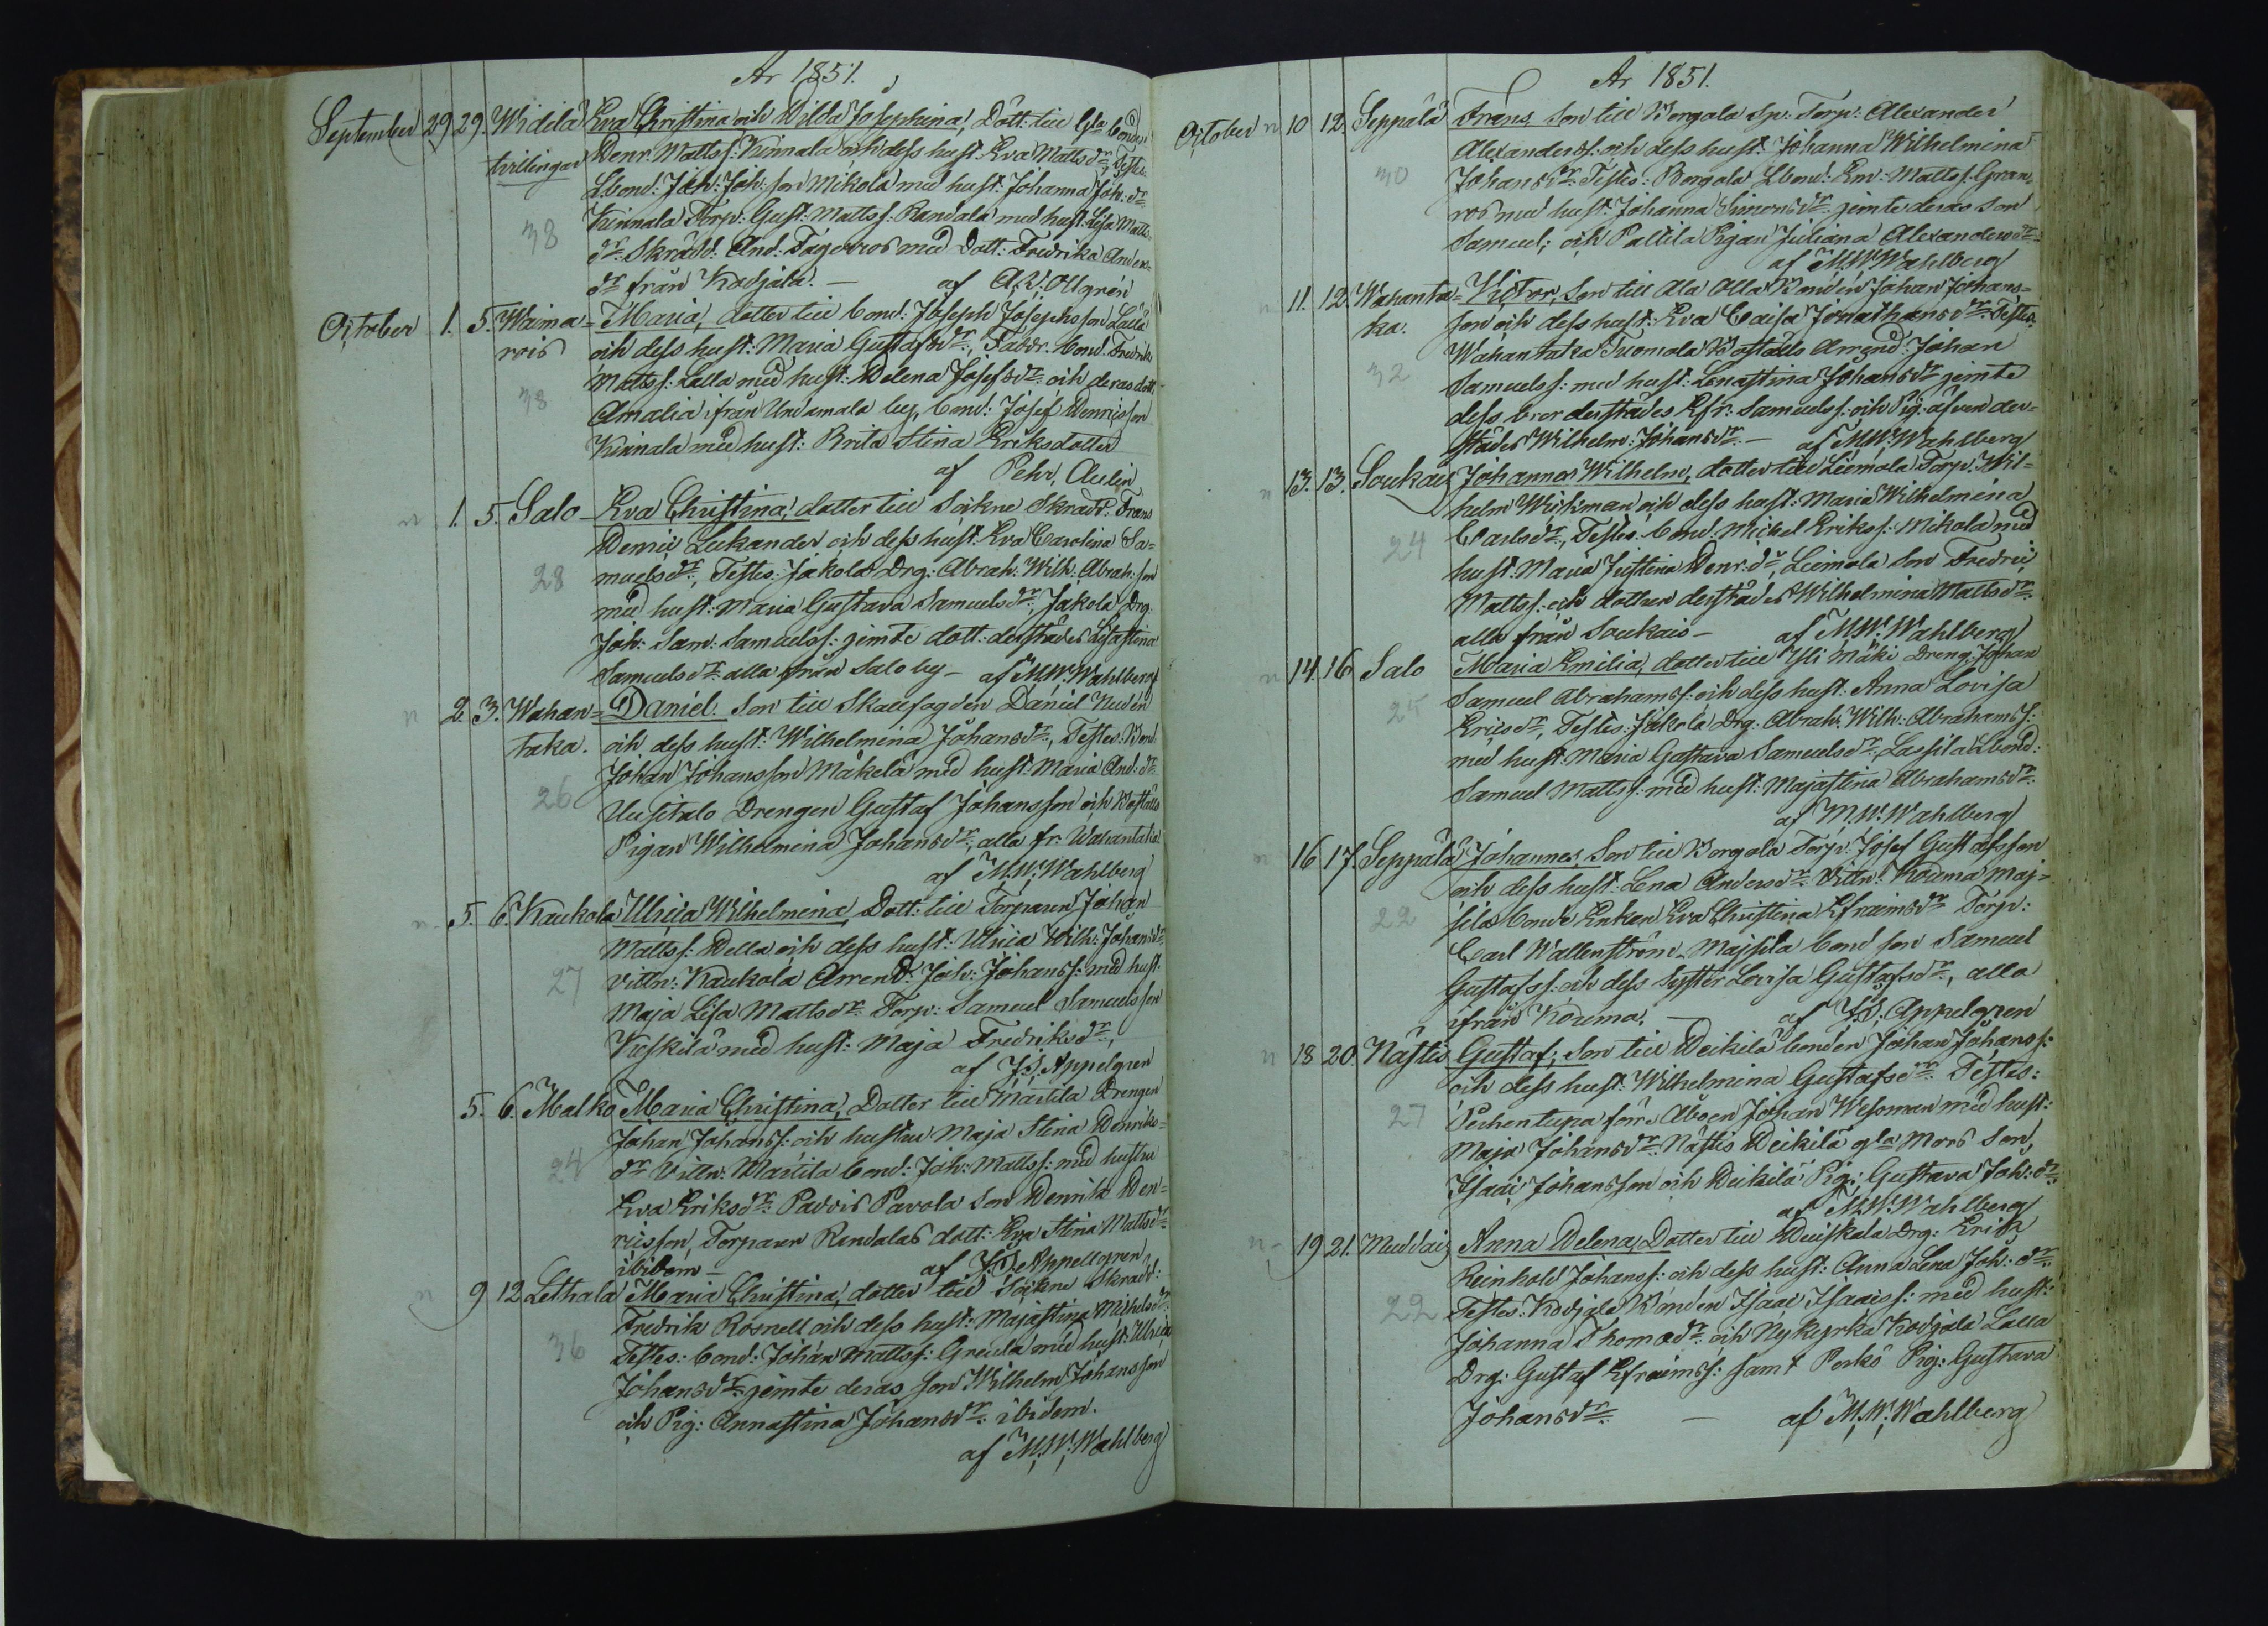 År 1851.
September 29 29. Widilä Eva Christina och Hilda Josephina, Dött: till Gla bonden
tvillingar Henr. Mattss: Kinnala och dess hust: Eva Mattsdr, Testes:
Lbond: Joh: Joh:son Mikola med hust: Johanna Joh:dr
38 Kinnala Torp: Gust: Mattss: Randala med hust: Lisa Matts
dr Skrädd: And: Fagerros med Dott: Fredrika Anders
dr från Kadjala. — af A.W. Ollgrén
October 1. 5. Waima= Maria, dotter till bond: Joseph Josephsson Lalla
rois och dess hust: Maria Gustafsdr, Fadr. bond. Fredrik
Mattss: Lalla med hust: Helena Josefsdr och deras dott.
38 Amalia ifrån Untamala by, bond: Josef Henricsson
Kinnala med hust: Brita Stina Eriksdotter
af Pehr Aulin
n 1. 5. Salo Eva Christina, dotter till Sockne Skradd. Frans
Henric Lukander och dess hust: Eva Carolina Sa=
28 muelsdr, Testes: Jakola Drg: Abrah: Wilh: Abrah:son
med hust: Maria Gustava Samuelsdr, Jakola Drg.
Joh: Sam: Samuelss: jemte dott: derstädes Lisastina
Samuelsdr alla från Salo by — af M.W. Wahlberg
n 2. 3. Wahan= Daniel. Son till Skallfogden Daniel Nudén
taka. och dess hust: Wilhelmina Johansdr, Testes: Bond.
Johan Johansson Mäkelä med hust: Maria And:dr
26 Uusitalo Drengen Gustaf Johansson och Boställs
Pigan Wilhelmina Johansdr, alla fr. Wahantaka
af M.W. Wahlberg
n 5. 6. Kaukola Ulrica Wilhelmina, Dott: till Torparen Johan
Mattss: Hella och dess hust: Ulrica Wilh: Johansdr
27 Vittn: Kaukola Arrend: Joh: Johanss: med hust
Maja Lisa Mattsdr. Torp: Samuel Samuelsson
Kuskila med hust: Maja Fredriksdr,
af J.S. Appelgren
5. 6. Malko Maria Christina, Dotter till Martila Drengen
Johan Johanss: och hustru Maja Stina Henriks=
24 dr Vittn: Martila bond: Joh: Mattss: med hustru
Eva Eriksdr. Padvis Pavola Son Henrik Hen=
ricsson, Torparen Rendalas dott: Eva Stina Mattsdr
ibidem — af J.S. Appelgren
n 9 12 Lethala Maria Christina, dotter till Sockne Skradd:
Fredrik Rosnell och dess hust: Majastina Michelsdr
36 Testes: bond: Johan Mattss: Greula med hust: Ulrica
Johansdr. jemte deras son Wilhelm Johansson
och Pig: Annastina Johansdr. ibidem.
af M.W. Wahlberg
År 1851.
October n 10 12. Seppälä Frans son till Borgala Sp: Torp: Alexander
Alexanderss: och dess hust: Johanna Wilhelmina
30 Johansdr. Testes: Borgala Lbond: Em: Mattss: Gran=
ros med hust: Johanna Simonsdr. jemte deras Son
Samuel; och Paltila Pigan Juliana Alexandersdr
af M.W. Wahlberg
n 11. 12. Wahanta= Victor, Son till Ala Olla Bonden Johan Johans=
ka. son och dess hust: Eva Caisa Jonathansdr. Testes:
Wahantaka Tuomola Boställs Arrend: Johan
32 Samuelss: med hust: Lenastina Johansdr jemte
dess bror derstädes Efr: Samuelss: och Pig. äfven der=
städes Wilhelm: Johansdr. — af M.W. Wahlberg
n 13. 13. Soukais Johanna Wilhelm, dotter till Liemola Torp: Wil=
helm Wickman och dess hust: Maria Wilhelmina
24 Carlsdr, Testes: bond: Michel Erikss: Mikola med
hust: Maria Justina Henr:dr, Liemola Son Fredric
Mattss: och dottren derstädes Wilhelmina Mattsdr
alla från Soukais — af M.W. Wahlberg
n 14. 16 Salo Maria Emilia, dotter till Yli Mäki Dreng Johan
25 Samuel Abrahamss: och dess hust: Anna Lovisa
Ericsdr, Testes: Jakola Drg: Abrah: Wilh: Abrahamss:
med hust: Maria Gustava Samuelsdr, Lassila Lbond:
Samuel Mattss: med hust: Majastina Abrahamsdr.
af M.W. Wahlberg
n 16 17. Seppälä Johannes, Son till Borgala Torp: Josef Gustafsson
och dess hust: Lena Andersdr. Vittn: Kouma Maj=
22 sila bonde Enkan Eva Christina Efraimsdr Torp:
Carl Wallenström, Majsila bond son Samuel
Gustafss: och dess Syster Lovisa Gustafsdr, alla
ifrån Kouma. — af J.S. Appelgren
n 18 20. Nästis Gustaf, Son till Heikilä bonden Johan Johanss:
och dess hust: Wilhelmina Gustafsdr. Testes:
27 Puhentupa förre Åboen Johan Wessman med hust:
Maja Johansdr. Nästis Heikilä gla Mors Son,
Isaac Johansson och Heikilä Pig: Gustava Joh:dr.
af M.W. Wahlberg
n 19 21. Muddais Anna Helena, Dotter till Huiskala Drg: Erik
Reinhold Johanss: och dess hust: Anna Lena Joh: dr
22 Testes: Kodjala Bonden Isaac Isaacss: med hust:
Johanna Thomasdr. och Nykyrka Kodjala Lalla
Drg: Gustaf Efraimss: samt Perkö Pig: Gustava
Johansdr. — af M.W. Wahlberg